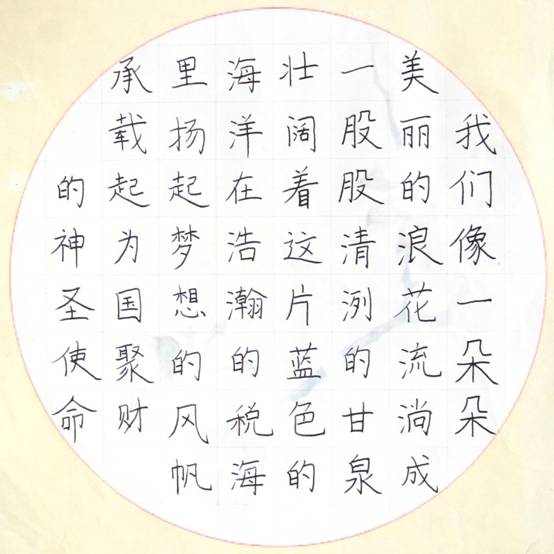 我们像一朵朵
美丽的浪花流淌成
一股股清洌的甘泉
壮阔着这片蓝色的
海洋在浩瀚的税海
里扬起梦想的风帆
承载起为国聚财
的神圣使命